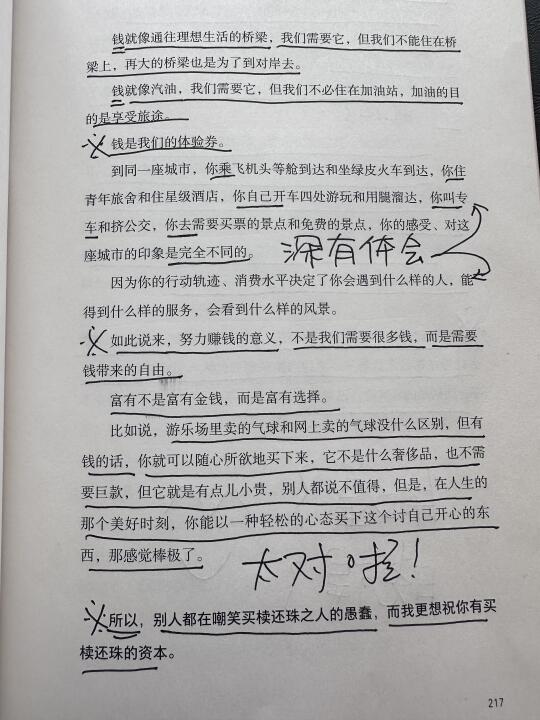 钱就像通往理想生活的桥梁，我们需要它，但我们不能住在桥
梁上，再大的桥梁也是为了到对岸去。
钱就像汽油，我们需要它，但我们不必住在加油站，加油的目
的是享受旅途。
钱是我们的体验券。
到同一座城市，你乘飞机头等舱到达和坐绿皮火车到达，你住
青年旅舍和住星级酒店，你自己开车四处游玩和用腿溜达，你叫专
车和挤公交，你去需要买票的景点和免费的景点，你的感受、对这
座城市的印象是完全不同的。
深有体会
因为你的行动轨迹、消费水平决定了你会遇到什么样的人，能
得到什么样的服务，会看到什么样的风景。
如此说来，努力赚钱的意义，不是我们需要很多钱，而是需要
钱带来的自由。
富有不是富有金钱，而是富有选择。
比如说，游乐场里卖的气球和网上卖的气球没什么区别，但有
钱的话，你就可以随心所欲地买下来，它不是什么奢侈品，也不需
要巨款，但它就是有点儿小贵，别人都说不值得，但是，在人生的
那个美好时刻，你能以一种轻松的心态买下这个讨自己开心的东
西，那感觉棒极了。
太对啦！
所以，别人都在嘲笑买椟还珠之人的愚蠢，而我更想祝你有买
椟还珠的资本。
217